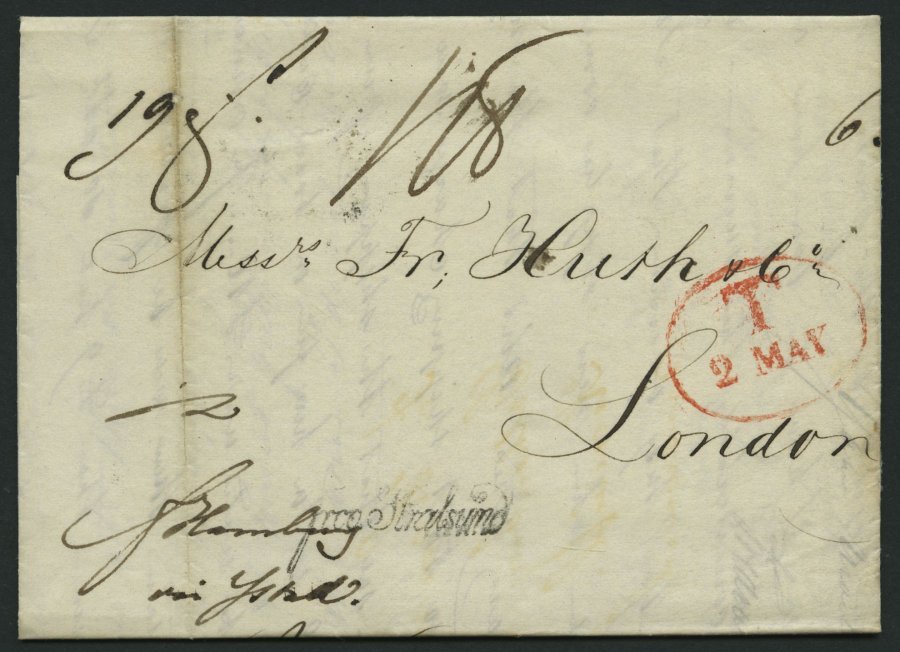 1/8
6.
Messrs. Fr, Huth & Co.
T
2 MAY
London
12
pr Hamburg
franco Stralsund
via Ystad.